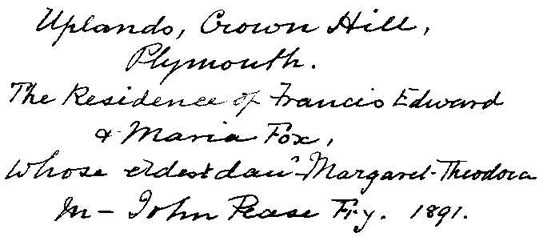 Uplands, Crown Hill,
Plymouth.
The Residence of Francis Edward
& Maria Fox,
whose eldest daur Margaret Theodora
m– John Pease Fry. 1891.